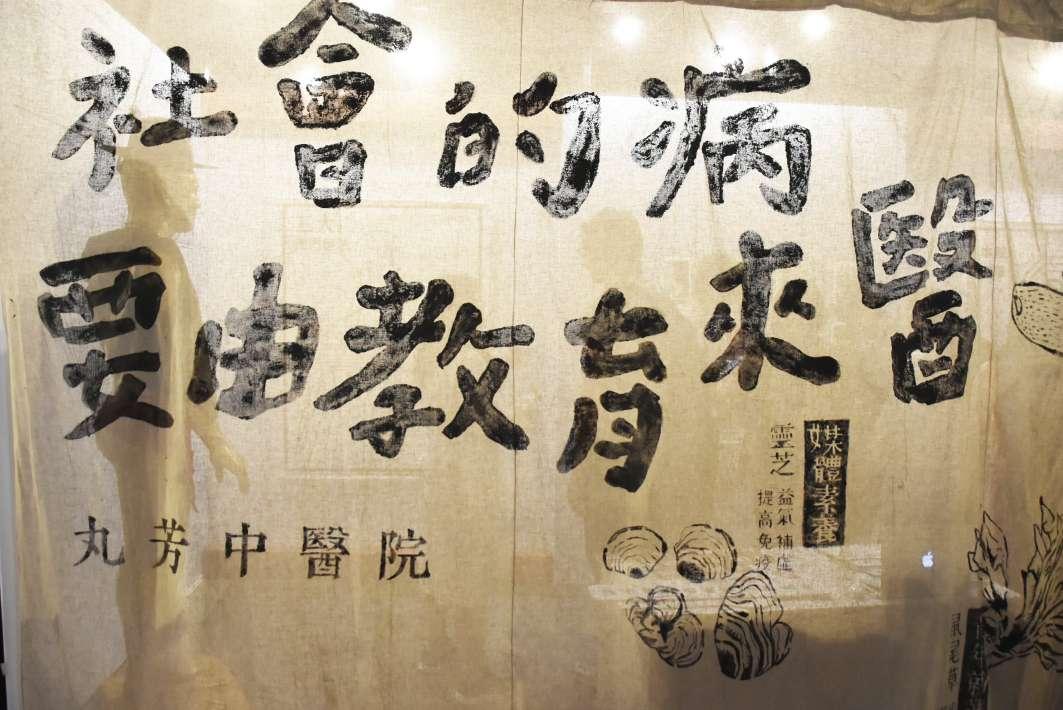 社會的病
要由教育來醫
丸芳中醫院
媒體素養
靈芝
益氣補虛
提高免疫